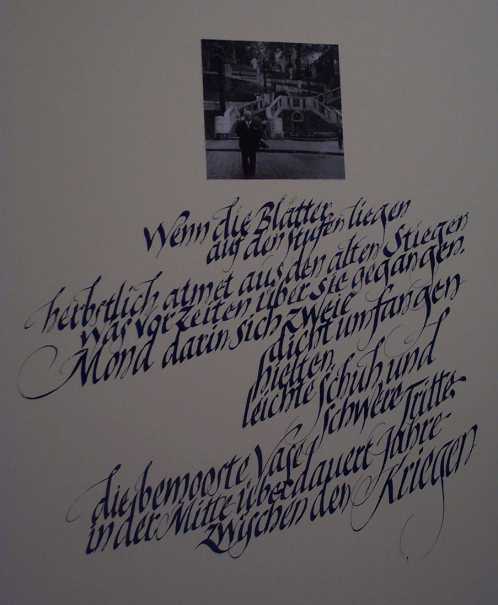 Wenn die Blätter
auf den stufen liegen
herbstlich atmet aus den alten Stiegen
was vor Zeiten über sie gegangen.
Mond darin sich zweie
dicht umfangen
hielten,
leichte Schuh und
schwere Tritte,
die bemooste Vase
in der Mitte überdauert Jahre
zwischen den Kriegen